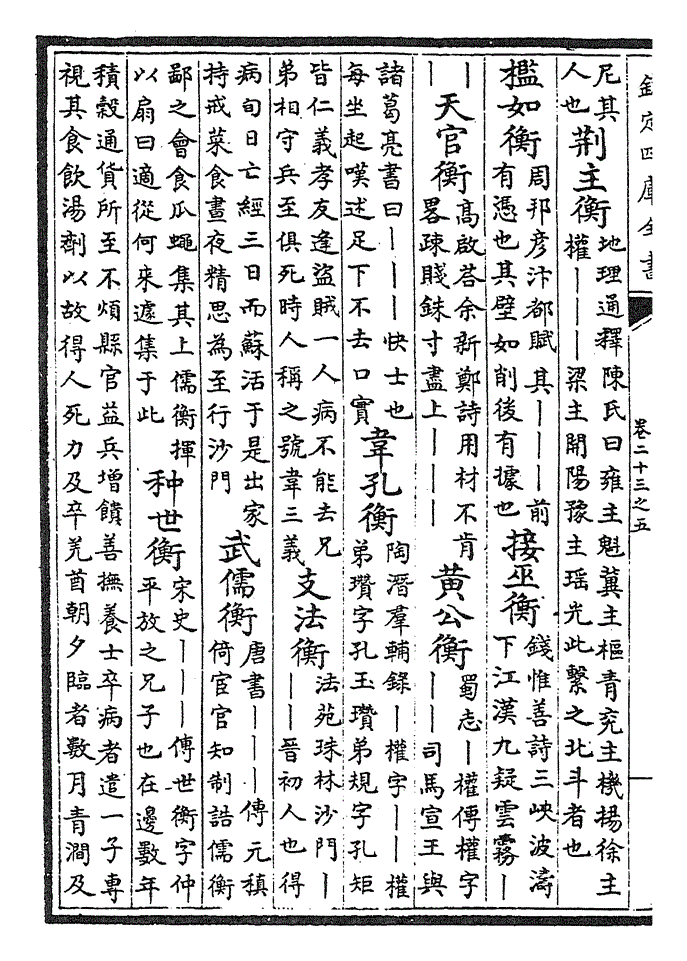 欽定四庫全書
卷二十三之五
尼其
人也
荆主衡
地理通釋陳氏曰雍主魁冀主樞青兖主機揚徐主
權｜｜｜梁主開陽豫主瑶光此繫之北斗者也
檻如衡
周邦彦汴都賦其｜｜｜前
有憑也其壁如削後有據也
接巫衡
錢惟善詩三峽波濤
下江漢九疑雲霧｜
｜
｜
天官衡
高啟荅余新鄭詩用材不肯
畧疎賤銖寸盡上｜｜｜
黄公衡
蜀志｜權傳權字
｜｜司馬宣王與
諸葛亮書曰｜｜｜快士也
每坐起嘆述足下不去口實
韋孔衡
陶潛羣輔錄｜權字｜｜權
弟瓚字孔玉瓚弟規字孔矩
皆仁義孝友逢盜賊一人病不能去兄
弟相守兵至俱死時人稱之號韋三義
支法衡
法苑珠林沙門｜
｜｜晉初人也得
病旬日亡經三日而蘇活于是出家
持戒菜食晝夜精思為至行沙門
武儒衡
唐書｜｜｜傳元稹
倚宦官知制誥儒衡
鄙之會食瓜蠅集其上儒衡揮
以扇曰適從何來遽集于此
种世衡
宋史｜｜｜傳世衡字仲
平放之兄子也在邊數年
積穀通貨所至不煩縣官益兵增饋善撫養士卒病者遣一子專
視其食飲湯劑以故得人死力及卒羌酋朝夕臨者數月青澗及